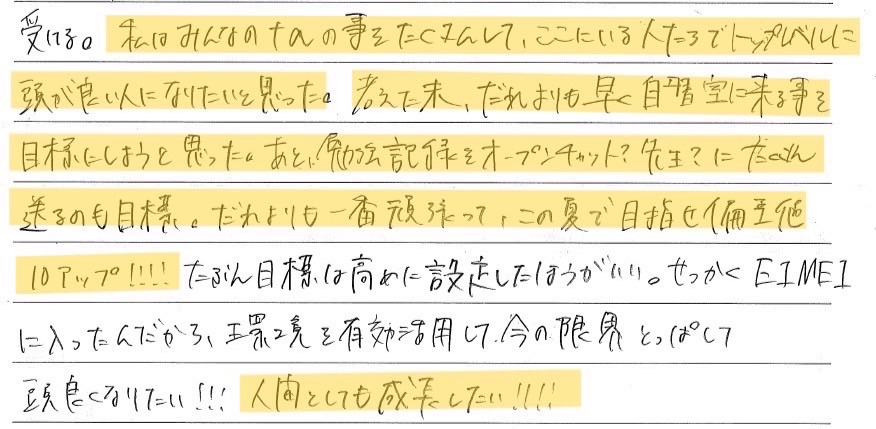 受ける。私はみんなの+αの事をたくさんして、ここにいる人たちでトップレベルに
頭が良い人になりたいと思った。考えた末、だれよりも早く自習室に来る事を
目標にしようと思った。あと、勉強記録をオープンチャット?先生?にたくさん
送るのも目標。だれよりも一番頑張って、この夏で目指せ偏差値
10アップ!!!! たぶん目標は高めに設定したほうがいい。せっかくEIMEI
に入ったんだから、環境を有効活用して今の限界とっぱして
頭良くなりたい!!! 人間としても成長したい!!!!